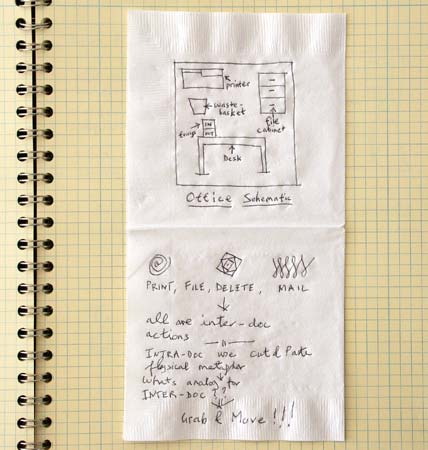 printer
waste-
basket
file
cabinet
trays
IN
OUT
Desk
Office Schematic
PRINT, FILE, DELETE, MAIL
all are inter-doc
actions
INTRA-DOC we cut & Paste
physical metaphor
whats analog for
INTER-DOC??
Grab & Move!!!